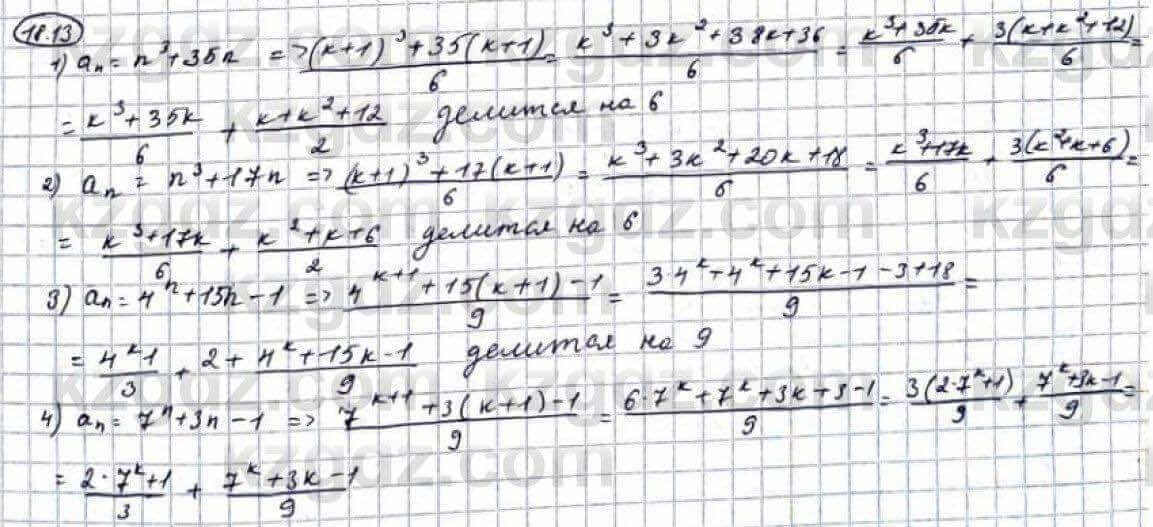 18.13
1) aₙ = n³+35n => ((k+1)³+35(k+1))/6 = (k³+3k²+38k+36)/6 = (k³+35k)/6 + (3(k+k²+12))/6 =
= (k³+35k)/6 + (k+k²+12)/2 делится на 6
2) aₙ = n³+17n => ((k+1)³+17(k+1))/6 = (k³+3k²+20k+18)/6 = (k³+17k)/6 + (3(k²+k+6))/6 =
= (k³+17k)/6 + (k²+k+6)/2 делится на 6
3) aₙ = 4ⁿ+15n-1 => (4ᵏ⁺¹+15(k+1)-1)/9 = (3·4ᵏ+4ᵏ+15k-1-3+18)/9 =
= (4ᵏ-1)/3 + 2 + (4ᵏ+15k-1)/9 делится на 9
4) aₙ = 7ⁿ+3n-1 => (7ᵏ⁺¹+3(k+1)-1)/9 = (6·7ᵏ+7ᵏ+3k+3-1)/9 = (3(2·7ᵏ+1))/9 + (7ᵏ+3k-1)/9 =
= (2·7ᵏ+1)/3 + (7ᵏ+3k-1)/9
kzgdz.com